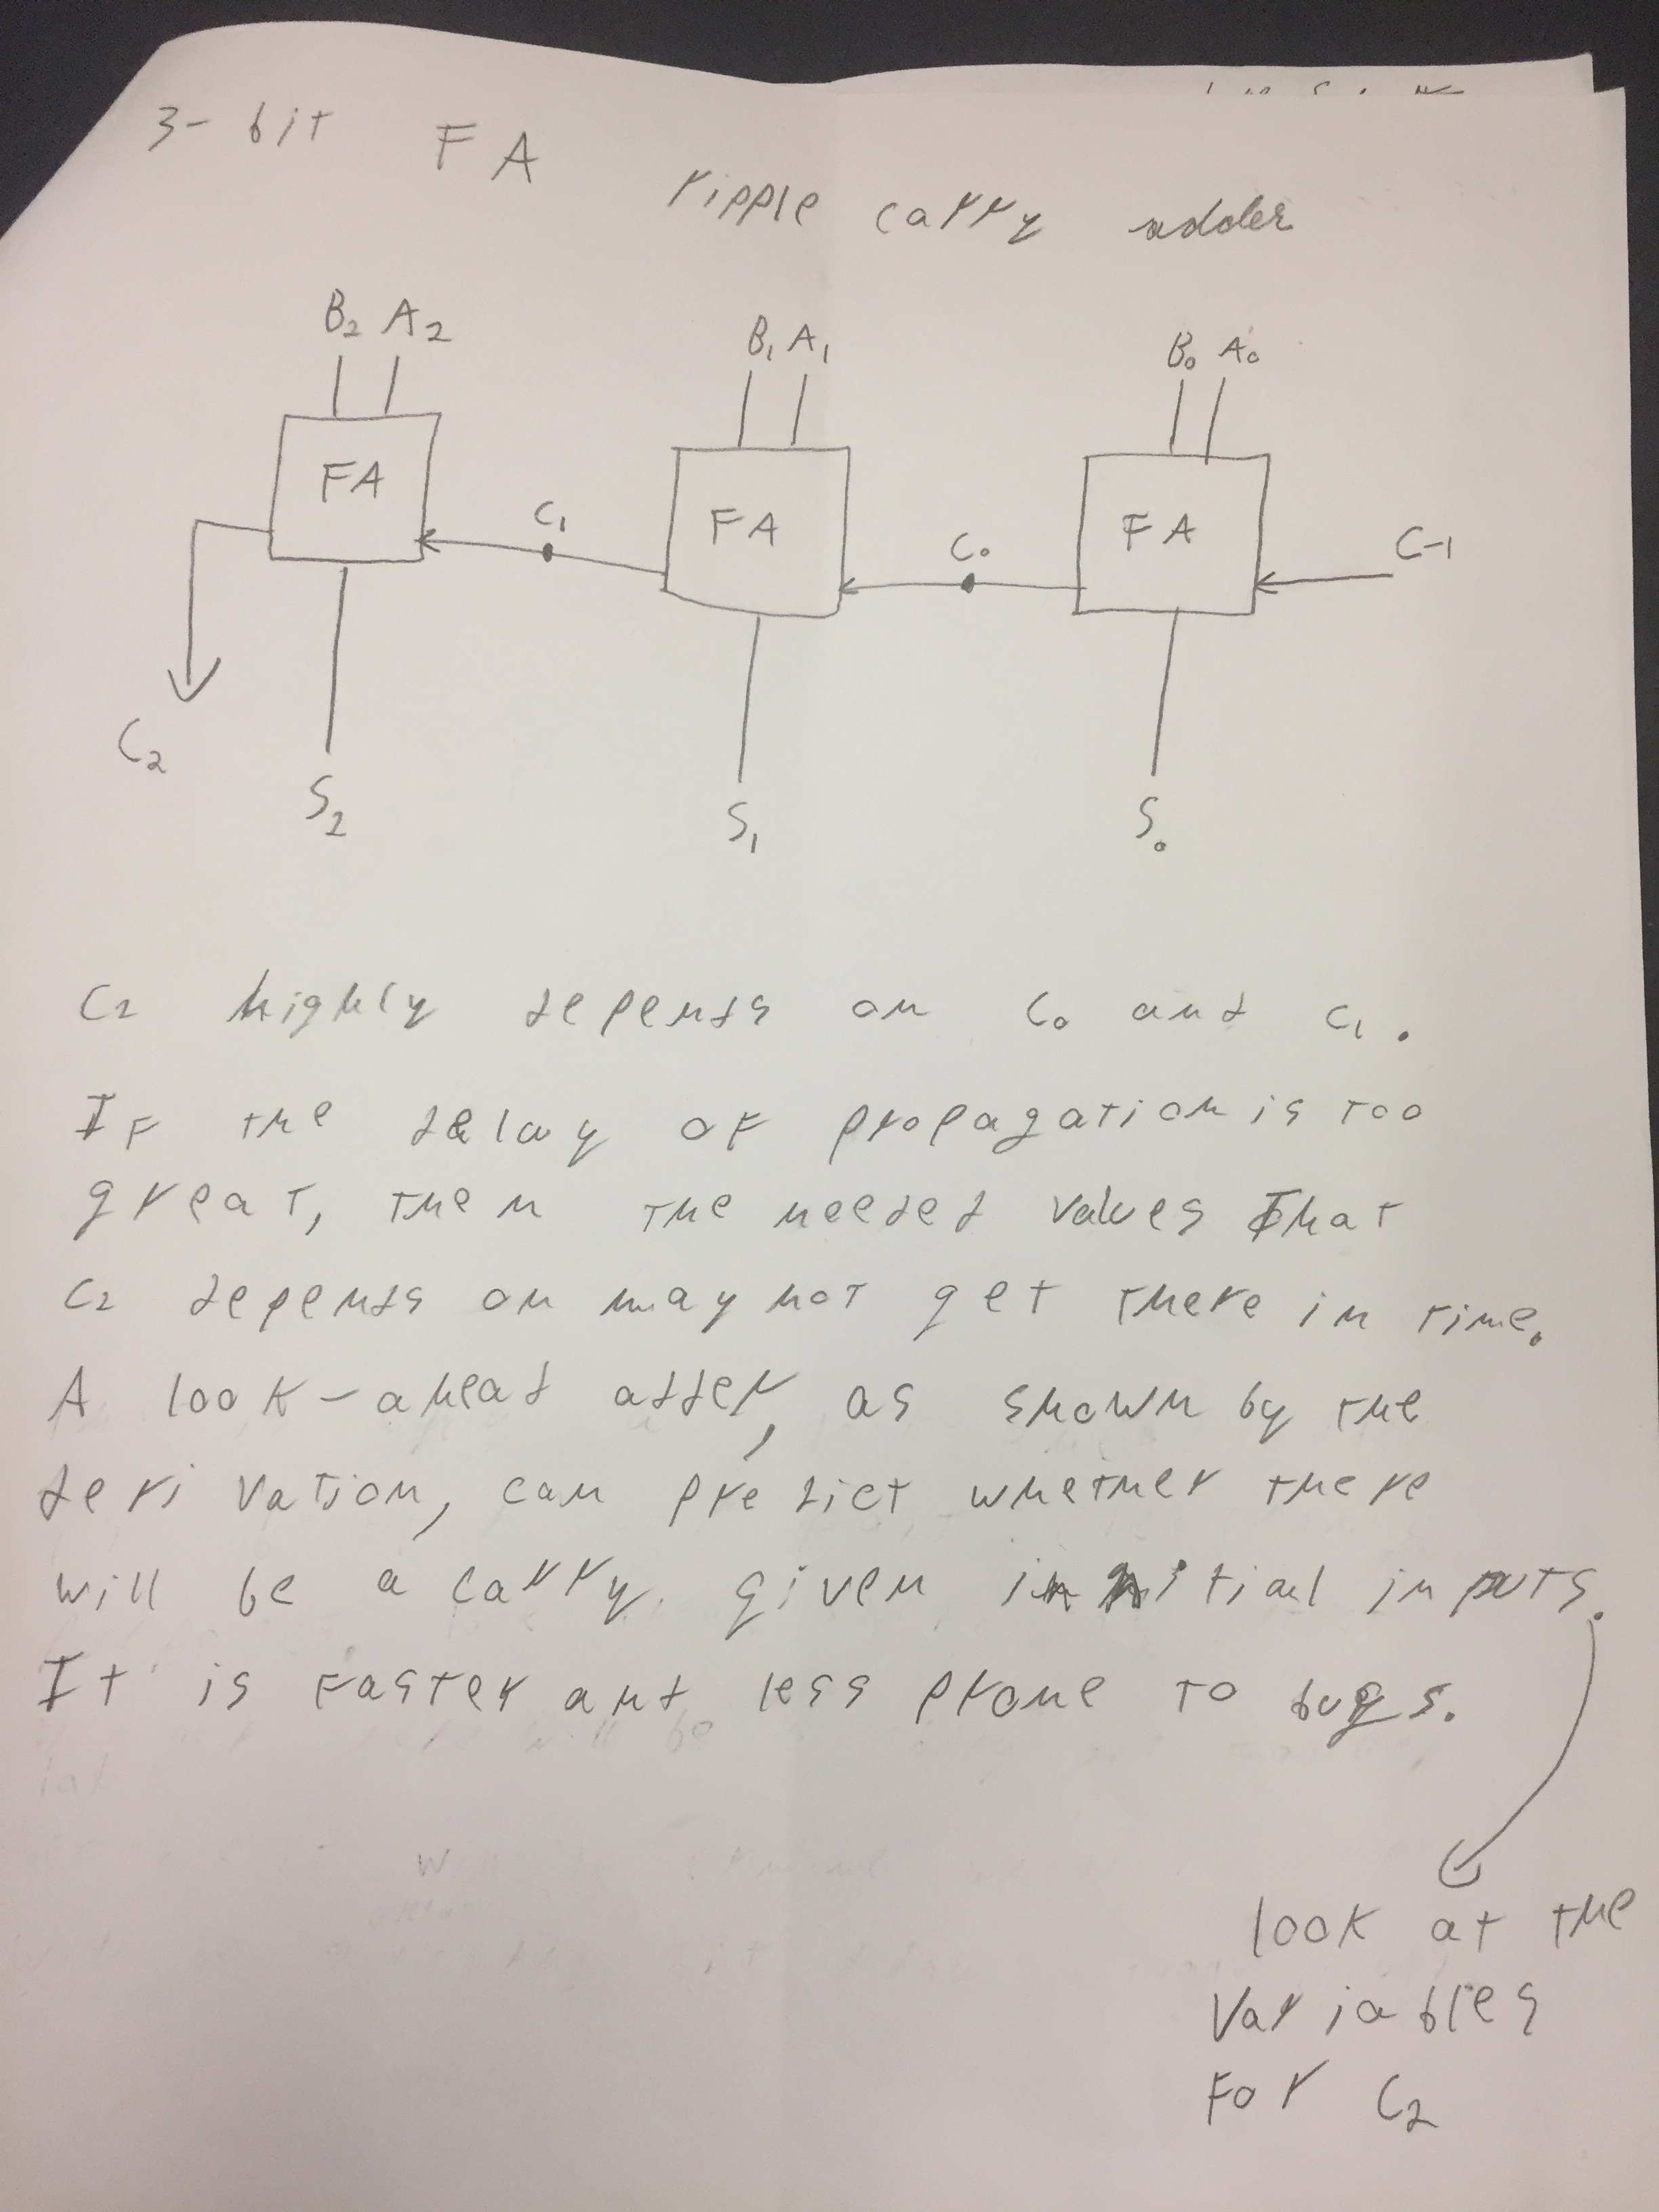 3-bit FA
ripple carry adder
B₂ A₂ B₁ A₁ B₀ A₀
FA FA FA
C₁ C₀ C-1
C₂
S₂ S₁ S₀
C₂ highly depends on C₀ and C₁.
IF the delay of propagation is too
great, then the needed values that
C₂ depends on may not get there in time.
A look-ahead adder, as shown by the
derivation, can predict whether there
will be a carry, given initial inputs.
It is faster and less prone to bugs.
look at the
variables
for C₂